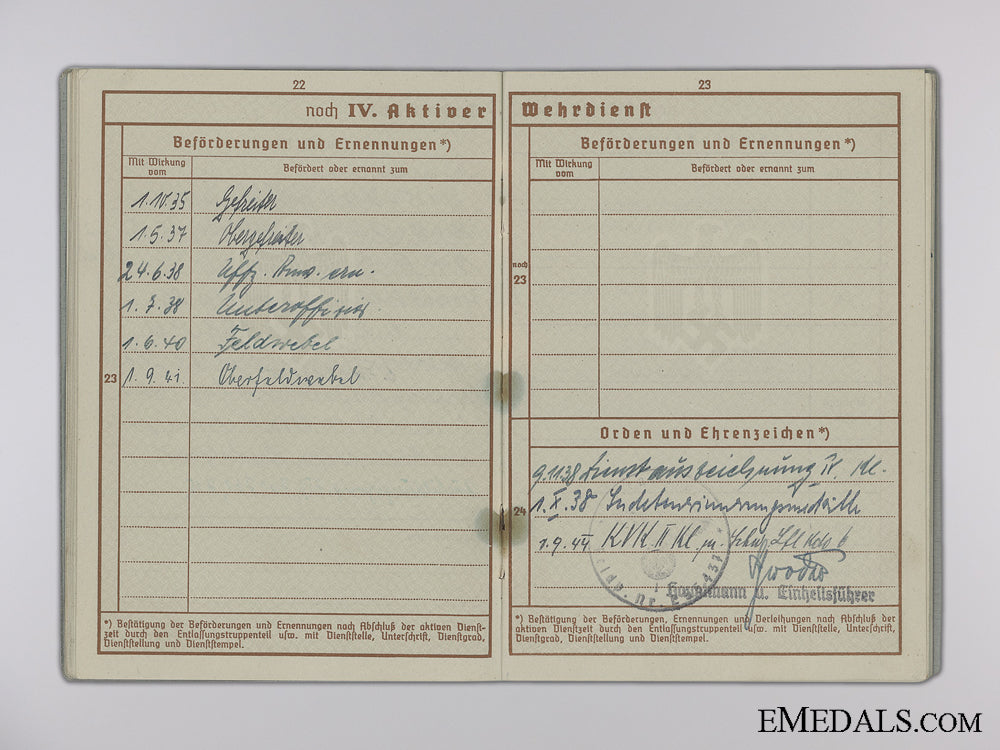 22
noch IV. Aktiver
Beförderungen und Ernennungen*)
Mit Wirkung vom
Befördert oder ernannt zum
1.10.35 Gefreiter
1.5.37 Obergefreiter
24.6.38 Uffz.
1.7.38 Unteroffizier
1.6.40 Feldwebel
23 1.9.41 Oberfeldwebel
*) Bestätigung der Beförderungen und Ernennungen nach Abschluß der aktiven Dienst-
zeit durch den Entlassungstruppenteil usw. mit Dienststelle, Unterschrift, Dienstgrad,
Dienststellung und Dienststempel.
23
Wehrdienst
Beförderungen und Ernennungen*)
Mit Wirkung vom
Befördert oder ernannt zum
noch
23
Orden und Ehrenzeichen*)
9.11.38 Dienstauszeichnung IV. Kl.
24 1.X.38
1.9.44 KVK II Kl m. Lfl Kdo 6
Hauptmann u. Einheitsführer
*) Bestätigung der Beförderungen, Ernennungen und Verleihungen nach Abschluß der
aktiven Dienstzeit durch den Entlassungstruppenteil usw. mit Dienststelle, Unterschrift,
Dienstgrad, Dienststellung und Dienststempel.
EMEDALS.COM